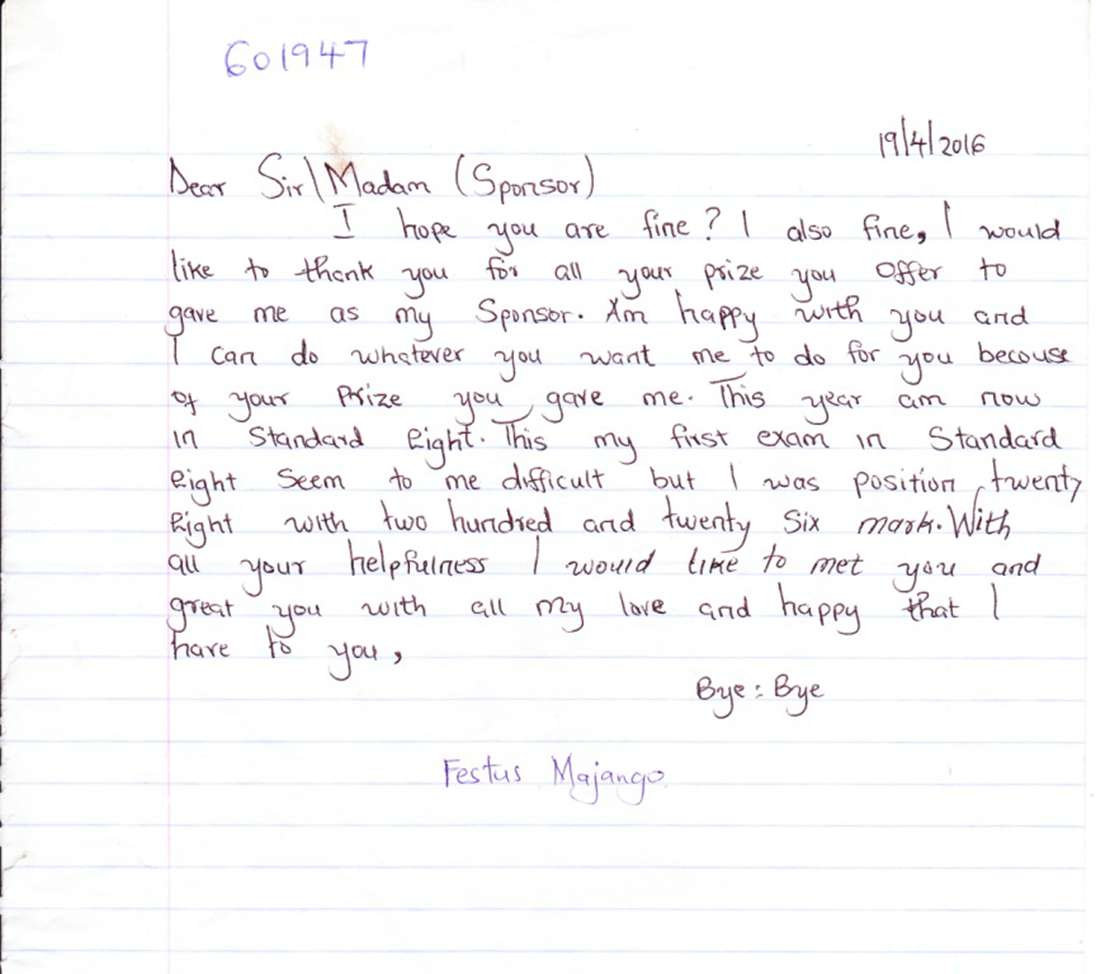 601947
19/4/2016
Dear Sir\Madam (Sponsor)
I hope you are fine? I also fine, I would
like to thank you for all your prize you offer to
gave me as my Sponsor. Am happy with you and
I can do whatever you want me to do for you becouse
of your Prize you gave me. This year am now
in Standard Eight. This my first exam in Standard
Eight Seem to me difficult but I was position twenty
Eight with two hundred and twenty Six mark. With
all your helpfulness I would like to met you and
great you with all my love and happy that I
have to you,
Bye : Bye
Festus Majango